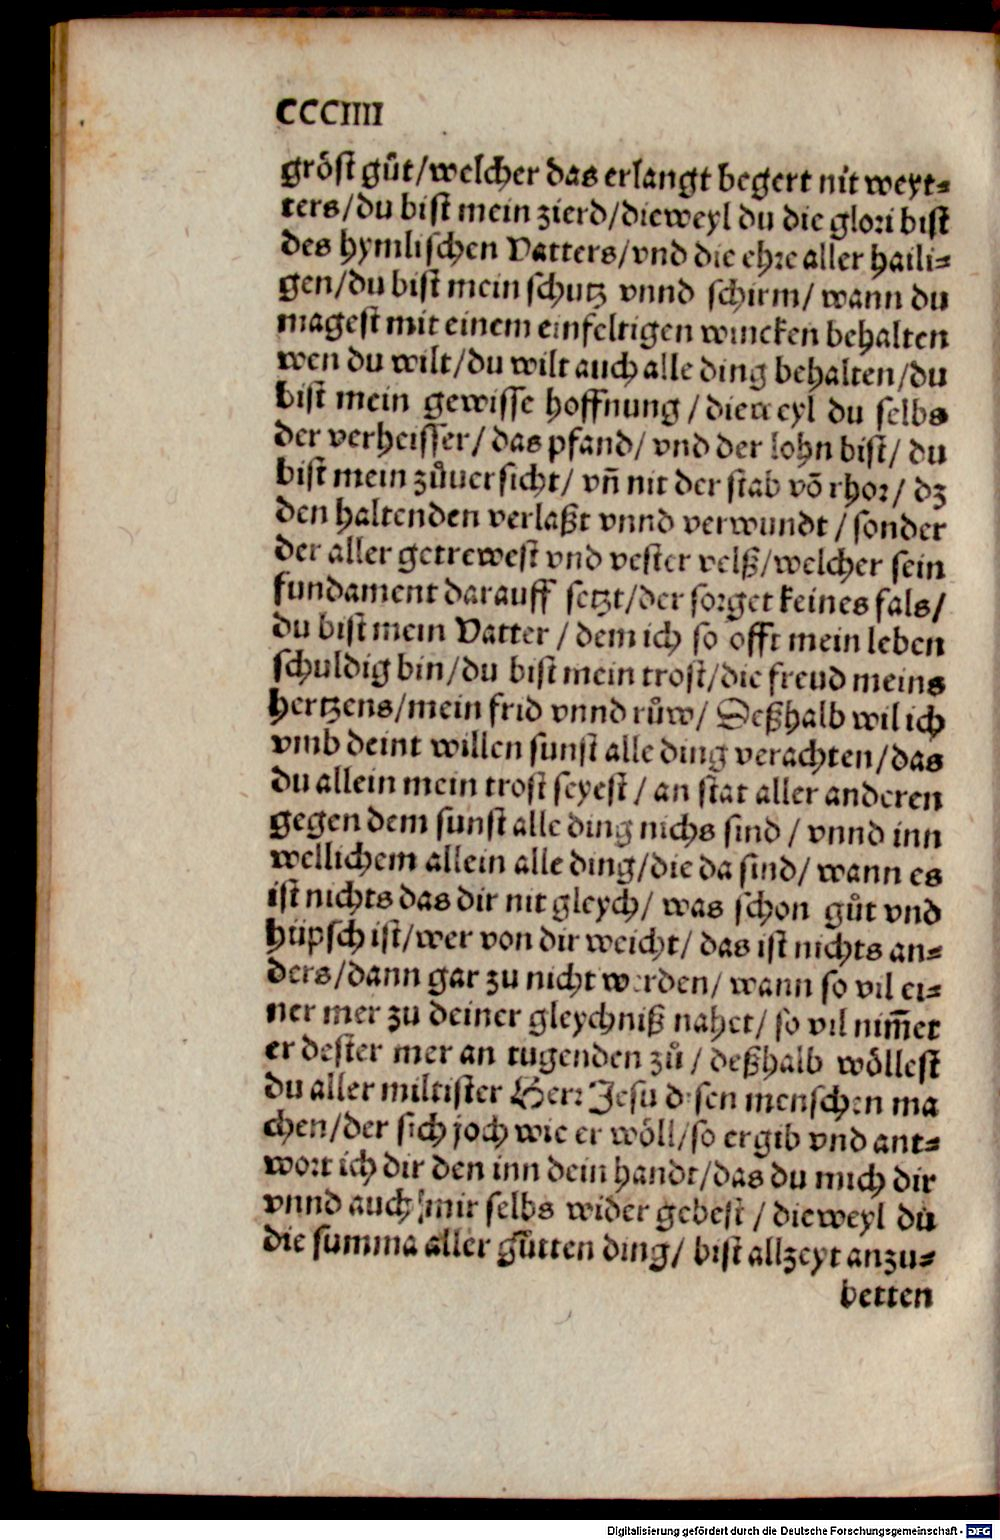 CCCIIII
gröst gůt/welcher das erlangt begert nit weyt-
ters/du bist mein zierd/dieweyl du die glori bist
des hymlischen Vatters/vnd die ehre aller haili-
gen/du bist mein schutz vnnd schirm/ wann du
magest mit einem einfeltigen wincken behalten
wen du wilt/du wilt auch alle ding behalten/du
bist mein gewisse hoffnung / dieweyl du selbs
der verheisser/ das pfand/ vnd der lohn bist/ du
bist mein zůuersicht/ vñ nit der stab võ rhor/ dz
den haltenden verlaßt vnnd verwundt / sonder
der aller getrewest vnd vester velß/welcher sein
fundament darauff setzt/der sorget keines fals/
du bist mein Vatter / dem ich so offt mein leben
schuldig bin/du bist mein trost/die freud meins
hertzens/mein frid vnnd růw/ Deßhalb wil ich
vmb deint willen sunst alle ding verachten/das
du allein mein trost seyest / an stat aller anderen
gegen dem sunst alle ding nichs sind / vnnd inn
wellichem allein alle ding/die da sind/ wann es
ist nichts das dir nit gleych/ was schon gůt vnd
hüpsch ist/wer von dir weicht/ das ist nichts an-
ders/dann gar zu nicht werden/ wann so vil ei-
ner mer zu deiner gleychniß nahet/ so vil nim̃et
er dester mer an tugenden zů / deßhalb wöllest
du aller miltister Herr Jesu disen menschen ma
chen/der sich joch wie er wöll/so ergib vnd ant-
wort ich dir den inn dein handt/das du mich dir
vnnd auch mir selbs wider gebest / dieweyl du
die summa aller gůtten ding/ bist allzeyt anzu-
betten
Digitalisierung gefördert durch die Deutsche Forschungsgemeinschaft - DFG